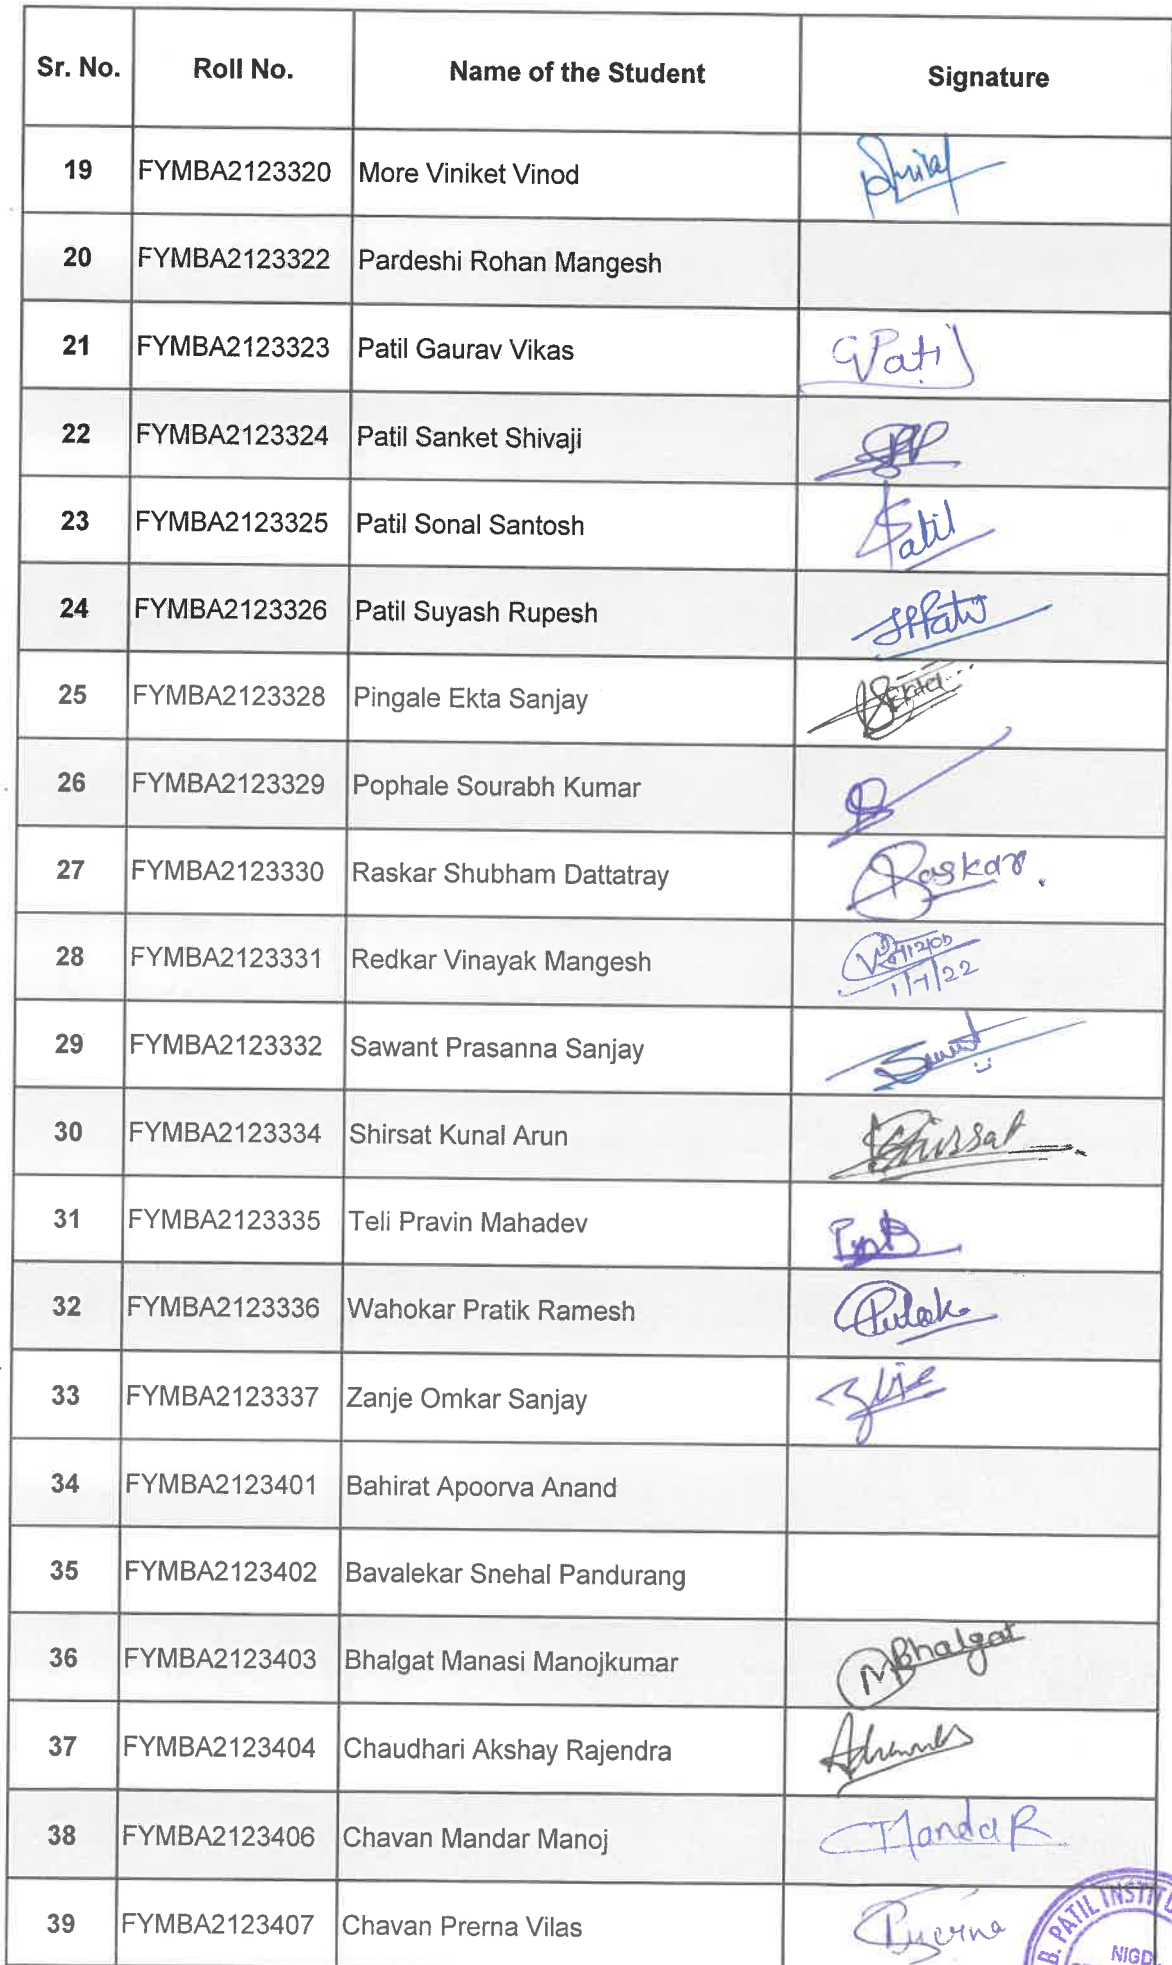 Sr. No. Roll No. Name of the Student Signature
19 FYMBA2123320 More Viniket Vinod
20 FYMBA2123322 Pardeshi Rohan Mangesh
21 FYMBA2123323 Patil Gaurav Vikas GPatil
22 FYMBA2123324 Patil Sanket Shivaji
23 FYMBA2123325 Patil Sonal Santosh Patil
24 FYMBA2123326 Patil Suyash Rupesh
25 FYMBA2123328 Pingale Ekta Sanjay Ekta
26 FYMBA2123329 Pophale Sourabh Kumar
27 FYMBA2123330 Raskar Shubham Dattatray Raskar.
28 FYMBA2123331 Redkar Vinayak Mangesh
29 FYMBA2123332 Sawant Prasanna Sanjay
30 FYMBA2123334 Shirsat Kunal Arun Shirsat
31 FYMBA2123335 Teli Pravin Mahadev
32 FYMBA2123336 Wahokar Pratik Ramesh
33 FYMBA2123337 Zanje Omkar Sanjay
34 FYMBA2123401 Bahirat Apoorva Anand
35 FYMBA2123402 Bavalekar Snehal Pandurang
36 FYMBA2123403 Bhalgat Manasi Manojkumar MBhalgat
37 FYMBA2123404 Chaudhari Akshay Rajendra
38 FYMBA2123406 Chavan Mandar Manoj MandaR
39 FYMBA2123407 Chavan Prerna Vilas Prerna
B. PATIL INSTITU
NIGD